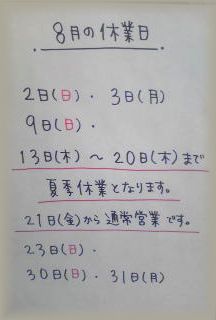 8月の休業日
2日(日)・3日(月)
9日(日)・
13日(木)～20日(木)まで
夏季休業となります。
21日(金)から通常営業です。
23日(日)・
30日(日)・31日(月)